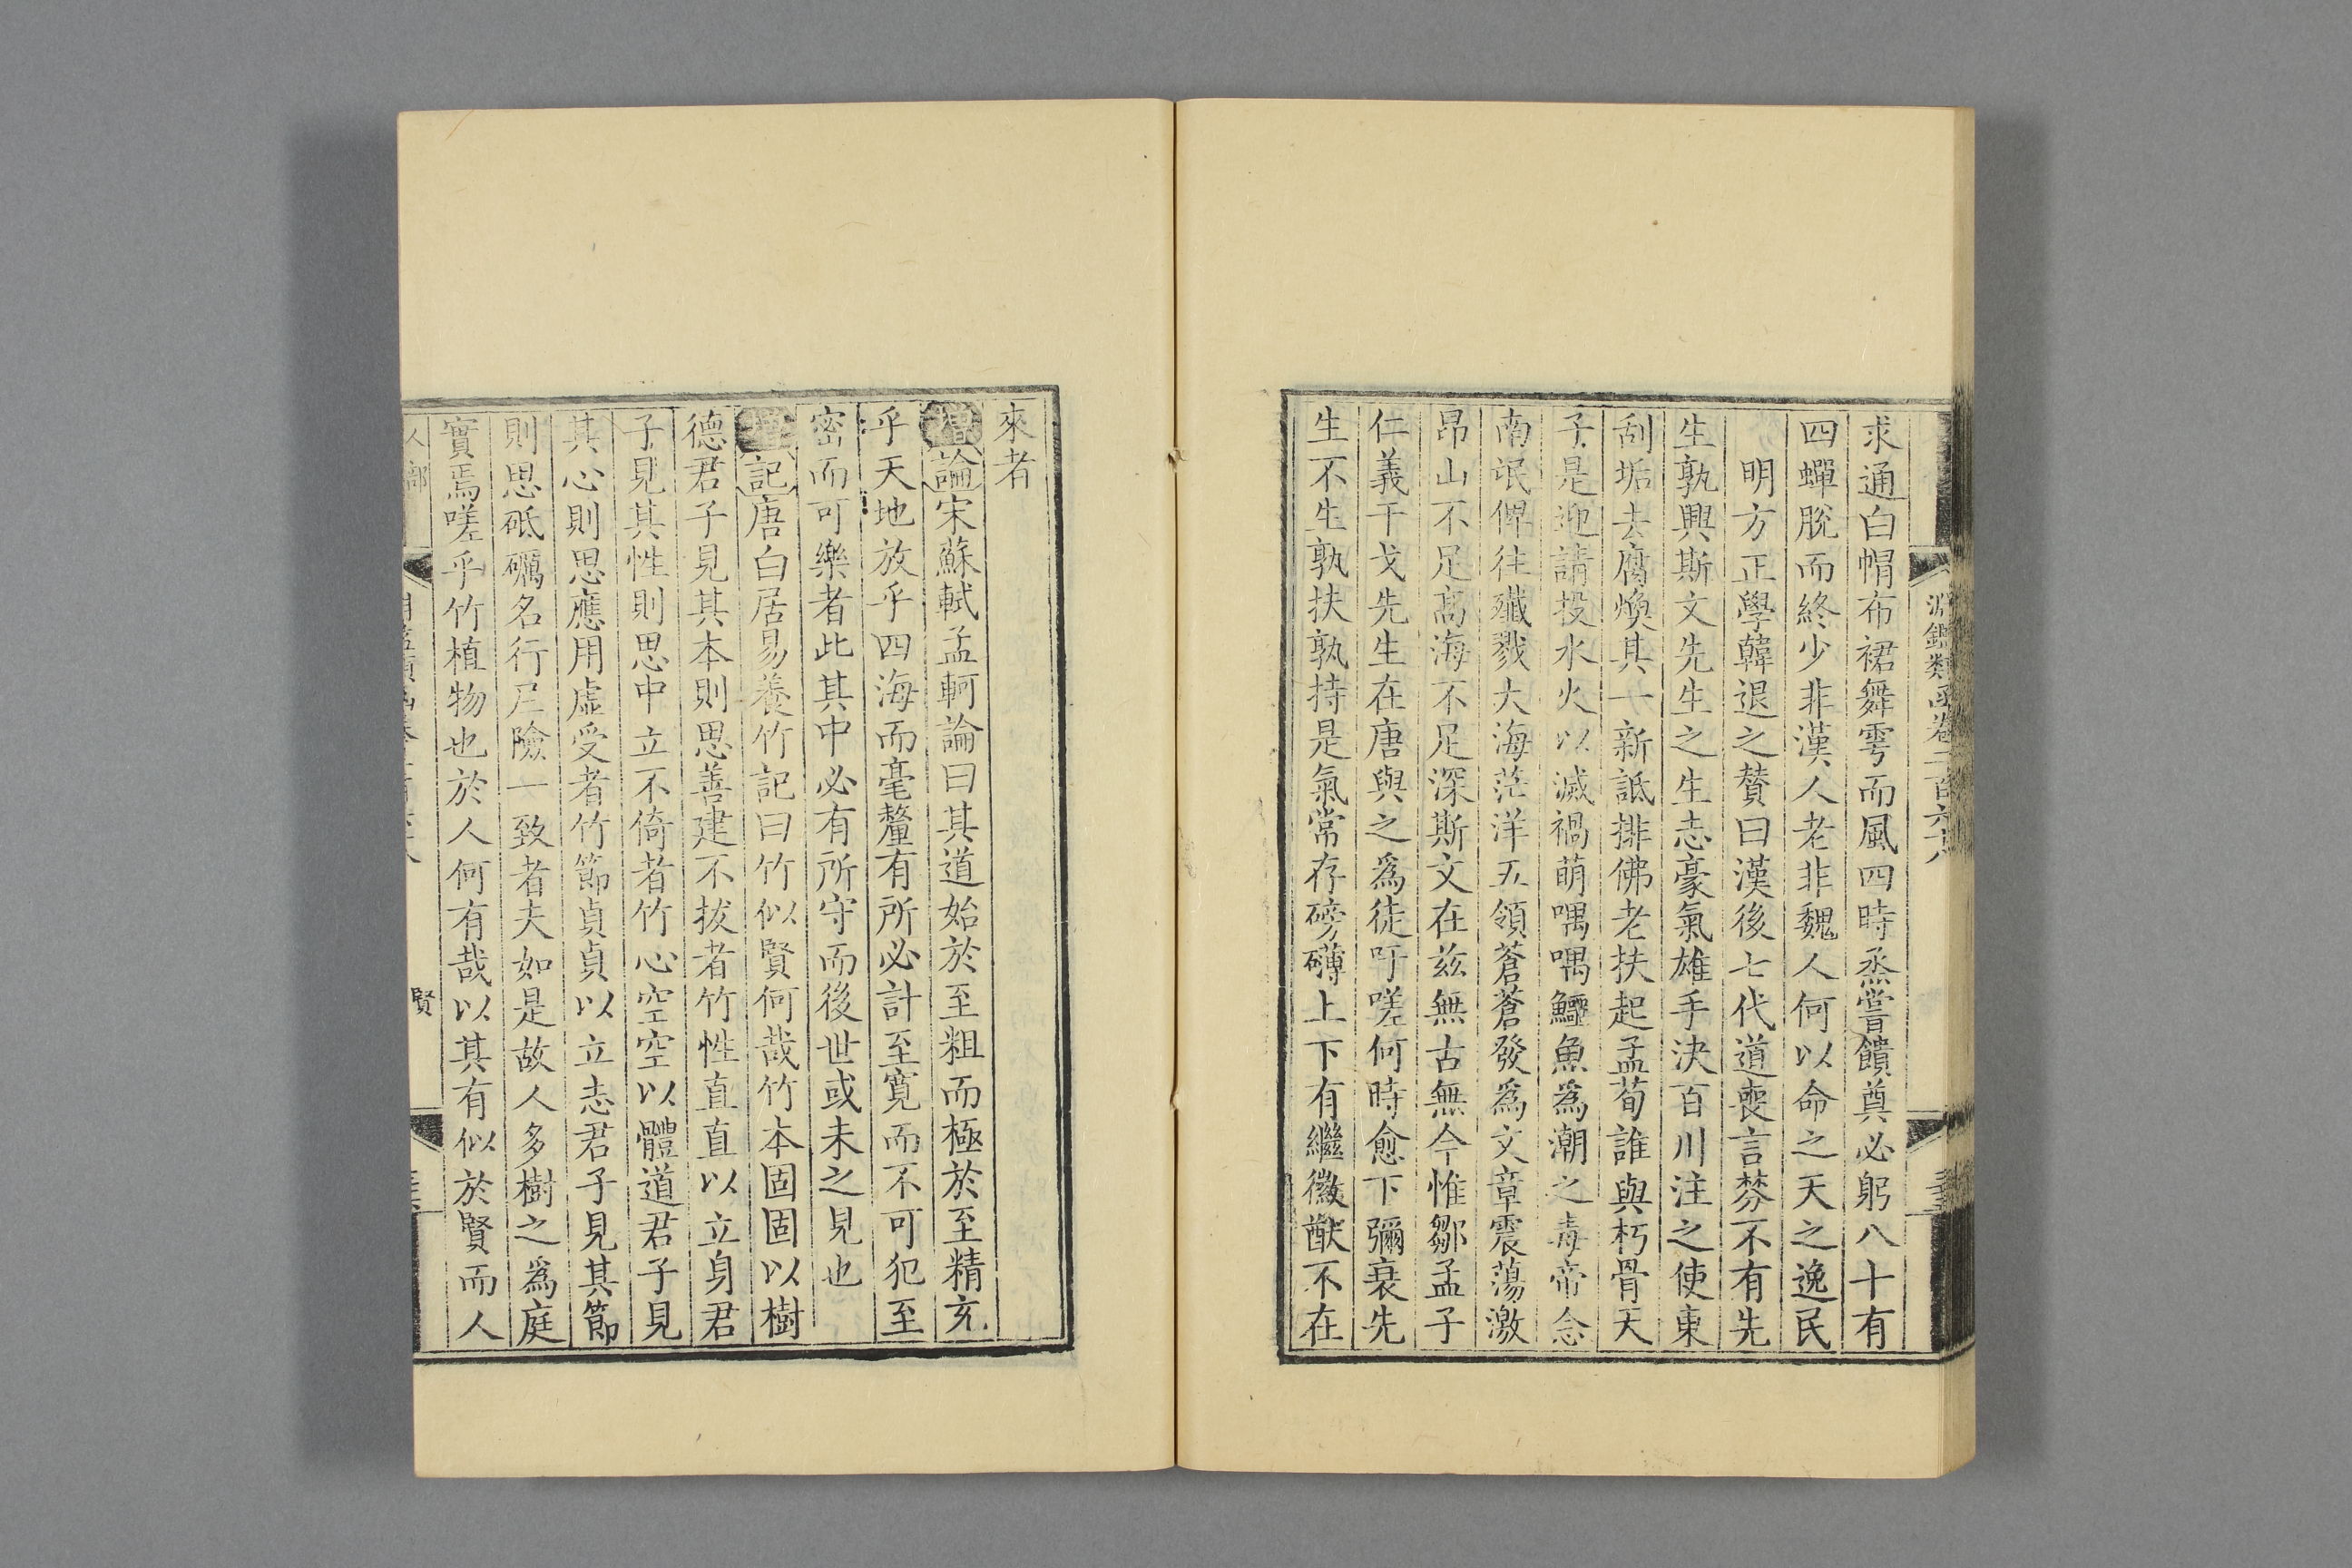 淵鑑類函卷二百六十八
求通白帽布裙舞雩而風四時烝嘗饋奠必躬八十有
四蟬脫而終少非漢人老非魏人何以命之天之逸民
明方正學韓退之贊曰漢後七代道喪言棼不有先
生孰興斯文先生之生志豪氣雄手決百川注之使東
刮垢去腐煥其一新詆排佛老扶起孟荀誰與朽骨天
子是迎請投水火以滅禍萌喁喁鱷魚為潮之毒帝念
南氓俾往殲戮大海茫洋五領蒼蒼發為文章震蕩激
昂山不足高海不足深斯文在茲無古無今惟鄒孟子
仁義干戈先生在唐與之為徒吁嗟何時愈下彌衰先
生不生孰扶孰持是氣常存磅礴上下有繼徽猷不在
來者
增論宋蘇軾孟軻論曰其道始於至粗而極於至精充
乎天地放乎四海而毫釐有所必計至寬而不可犯至
密而可樂者此其中必有所守而後世或未之見也
增記唐白居易養竹記曰竹似賢何哉竹本固固以樹
德君子見其本則思善建不拔者竹性直直以立身君
子見其性則思中立不倚者竹心空空以體道君子見
其心則思應用虛受者竹節貞貞以立志君子見其節
則思砥礪名行夷險一致者夫如是故人多樹之為庭
實焉嗟乎竹植物也於人何有哉以其有似於賢而人
賢